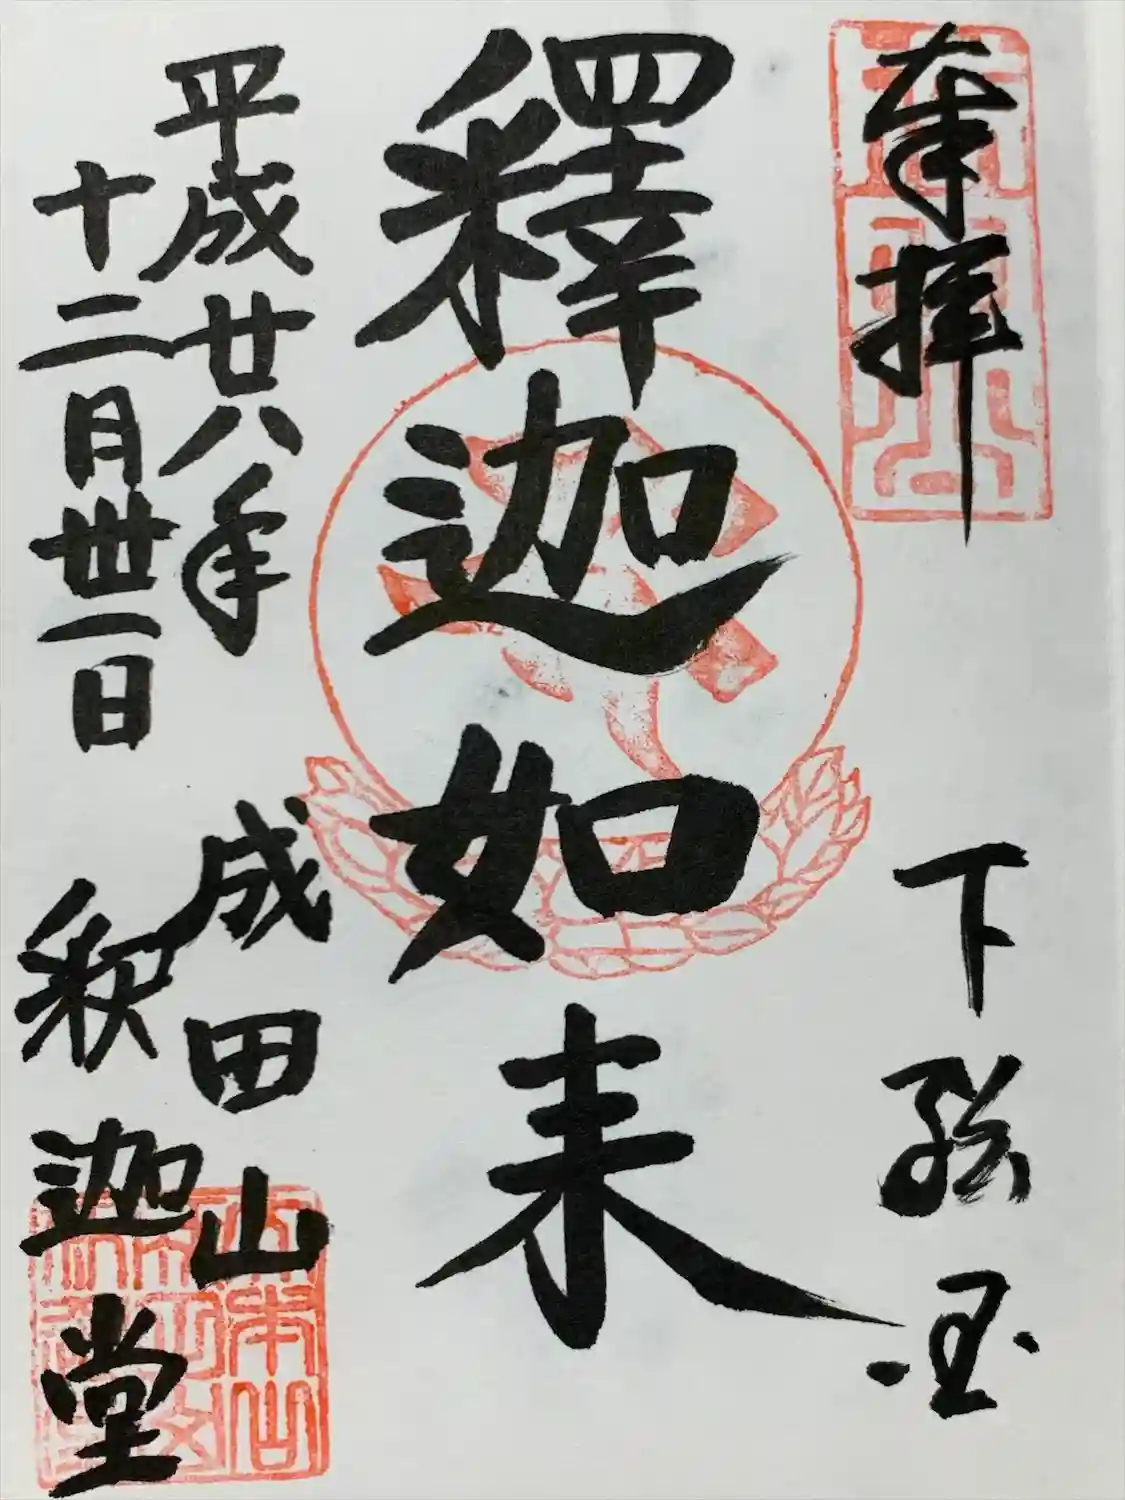 奉拝
下総国
釋迦如来
平成廿八年
十二月丗一日
成田山
釈迦堂